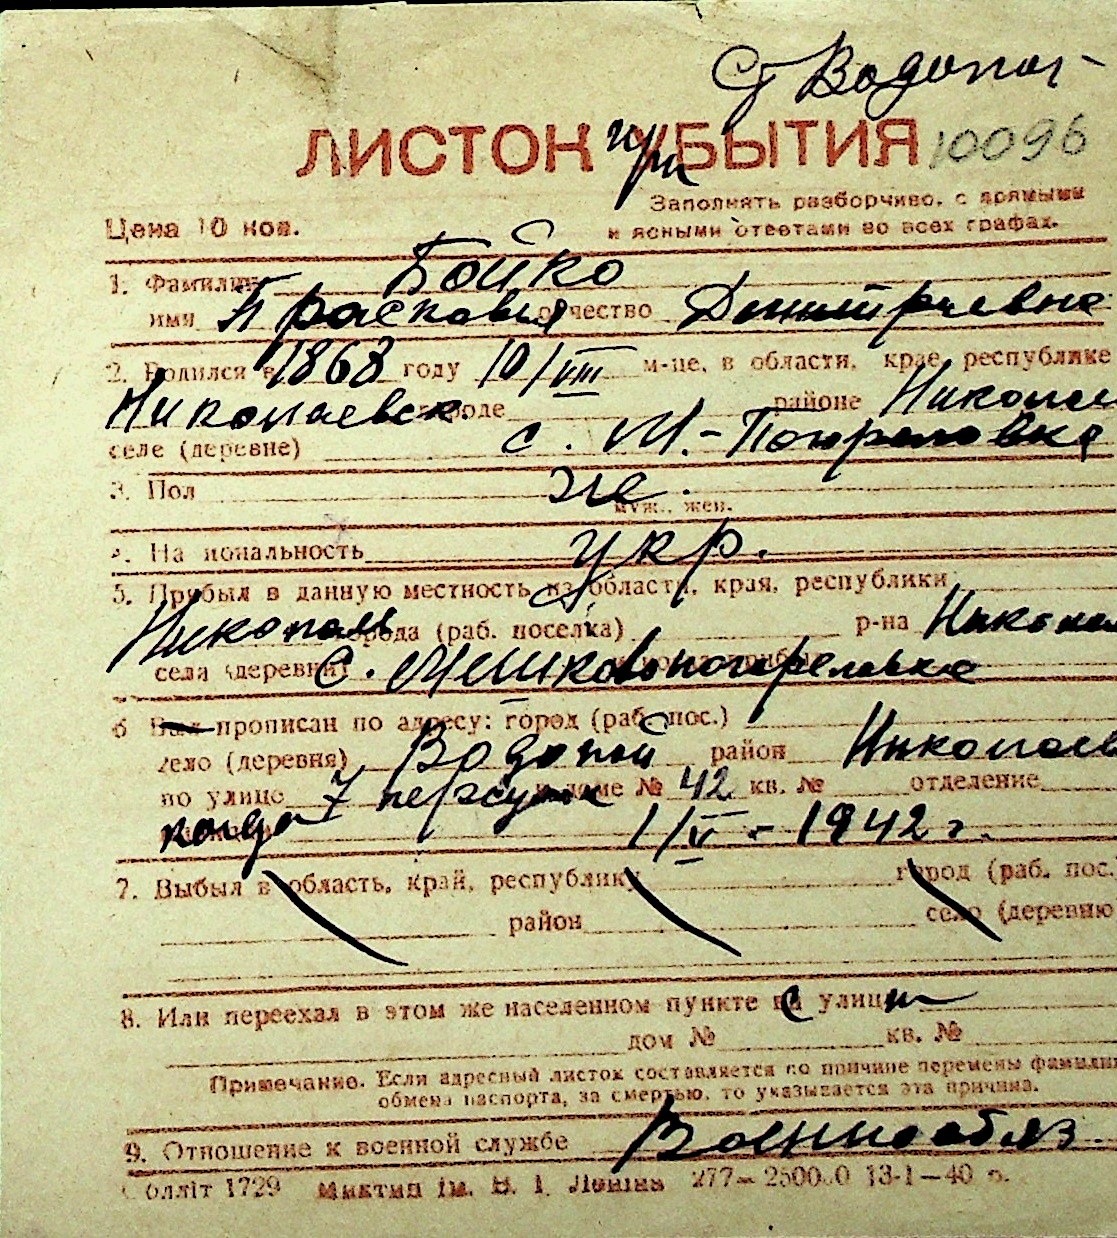 Ст Водопой
ЛИСТОК при УБЫТИЯ 10096
Заполнять разборчиво, с прямыми
Цена 10 коп. и ясными ответами во всех графах.
1. Фамилия Бойко
имя Прасковия отчество Димитриевна
2. Родился в 1868 году 10/VIII м-це, в области, крае, республике
Николаевск. городе районе Николаев
селе (деревне) с. М.-Погореловка
3. Пол же.
муж., жен.
4. Национальность укр.
5. Прибыл в данную местность из области, края, республики
Николаев города (раб. поселка) р-на Николаев
села (деревни) с. Мешковопогореловка
6 Был прописан по адресу: город (раб. пос.)
село (деревня) Водопой район Николаев
по улице 7 пересупок доме № 42 кв. № отделение
когда 1/V - 1942 г.
7. Выбыл в область, край, республику город (раб. пос.
район село (деревню
8. Или переехал в этом же населенном пункте с улицы
дом № кв. №
Примечание. Если адресный листок составляется по причине перемены фамилии
обмена паспорта, за смертью, то указывается эта причина.
9. Отношение к военной службе Военнообяз.
Обллiт 1729 Миктип iм. В. I. Ленiна 277— 25000 13-1—40 р.